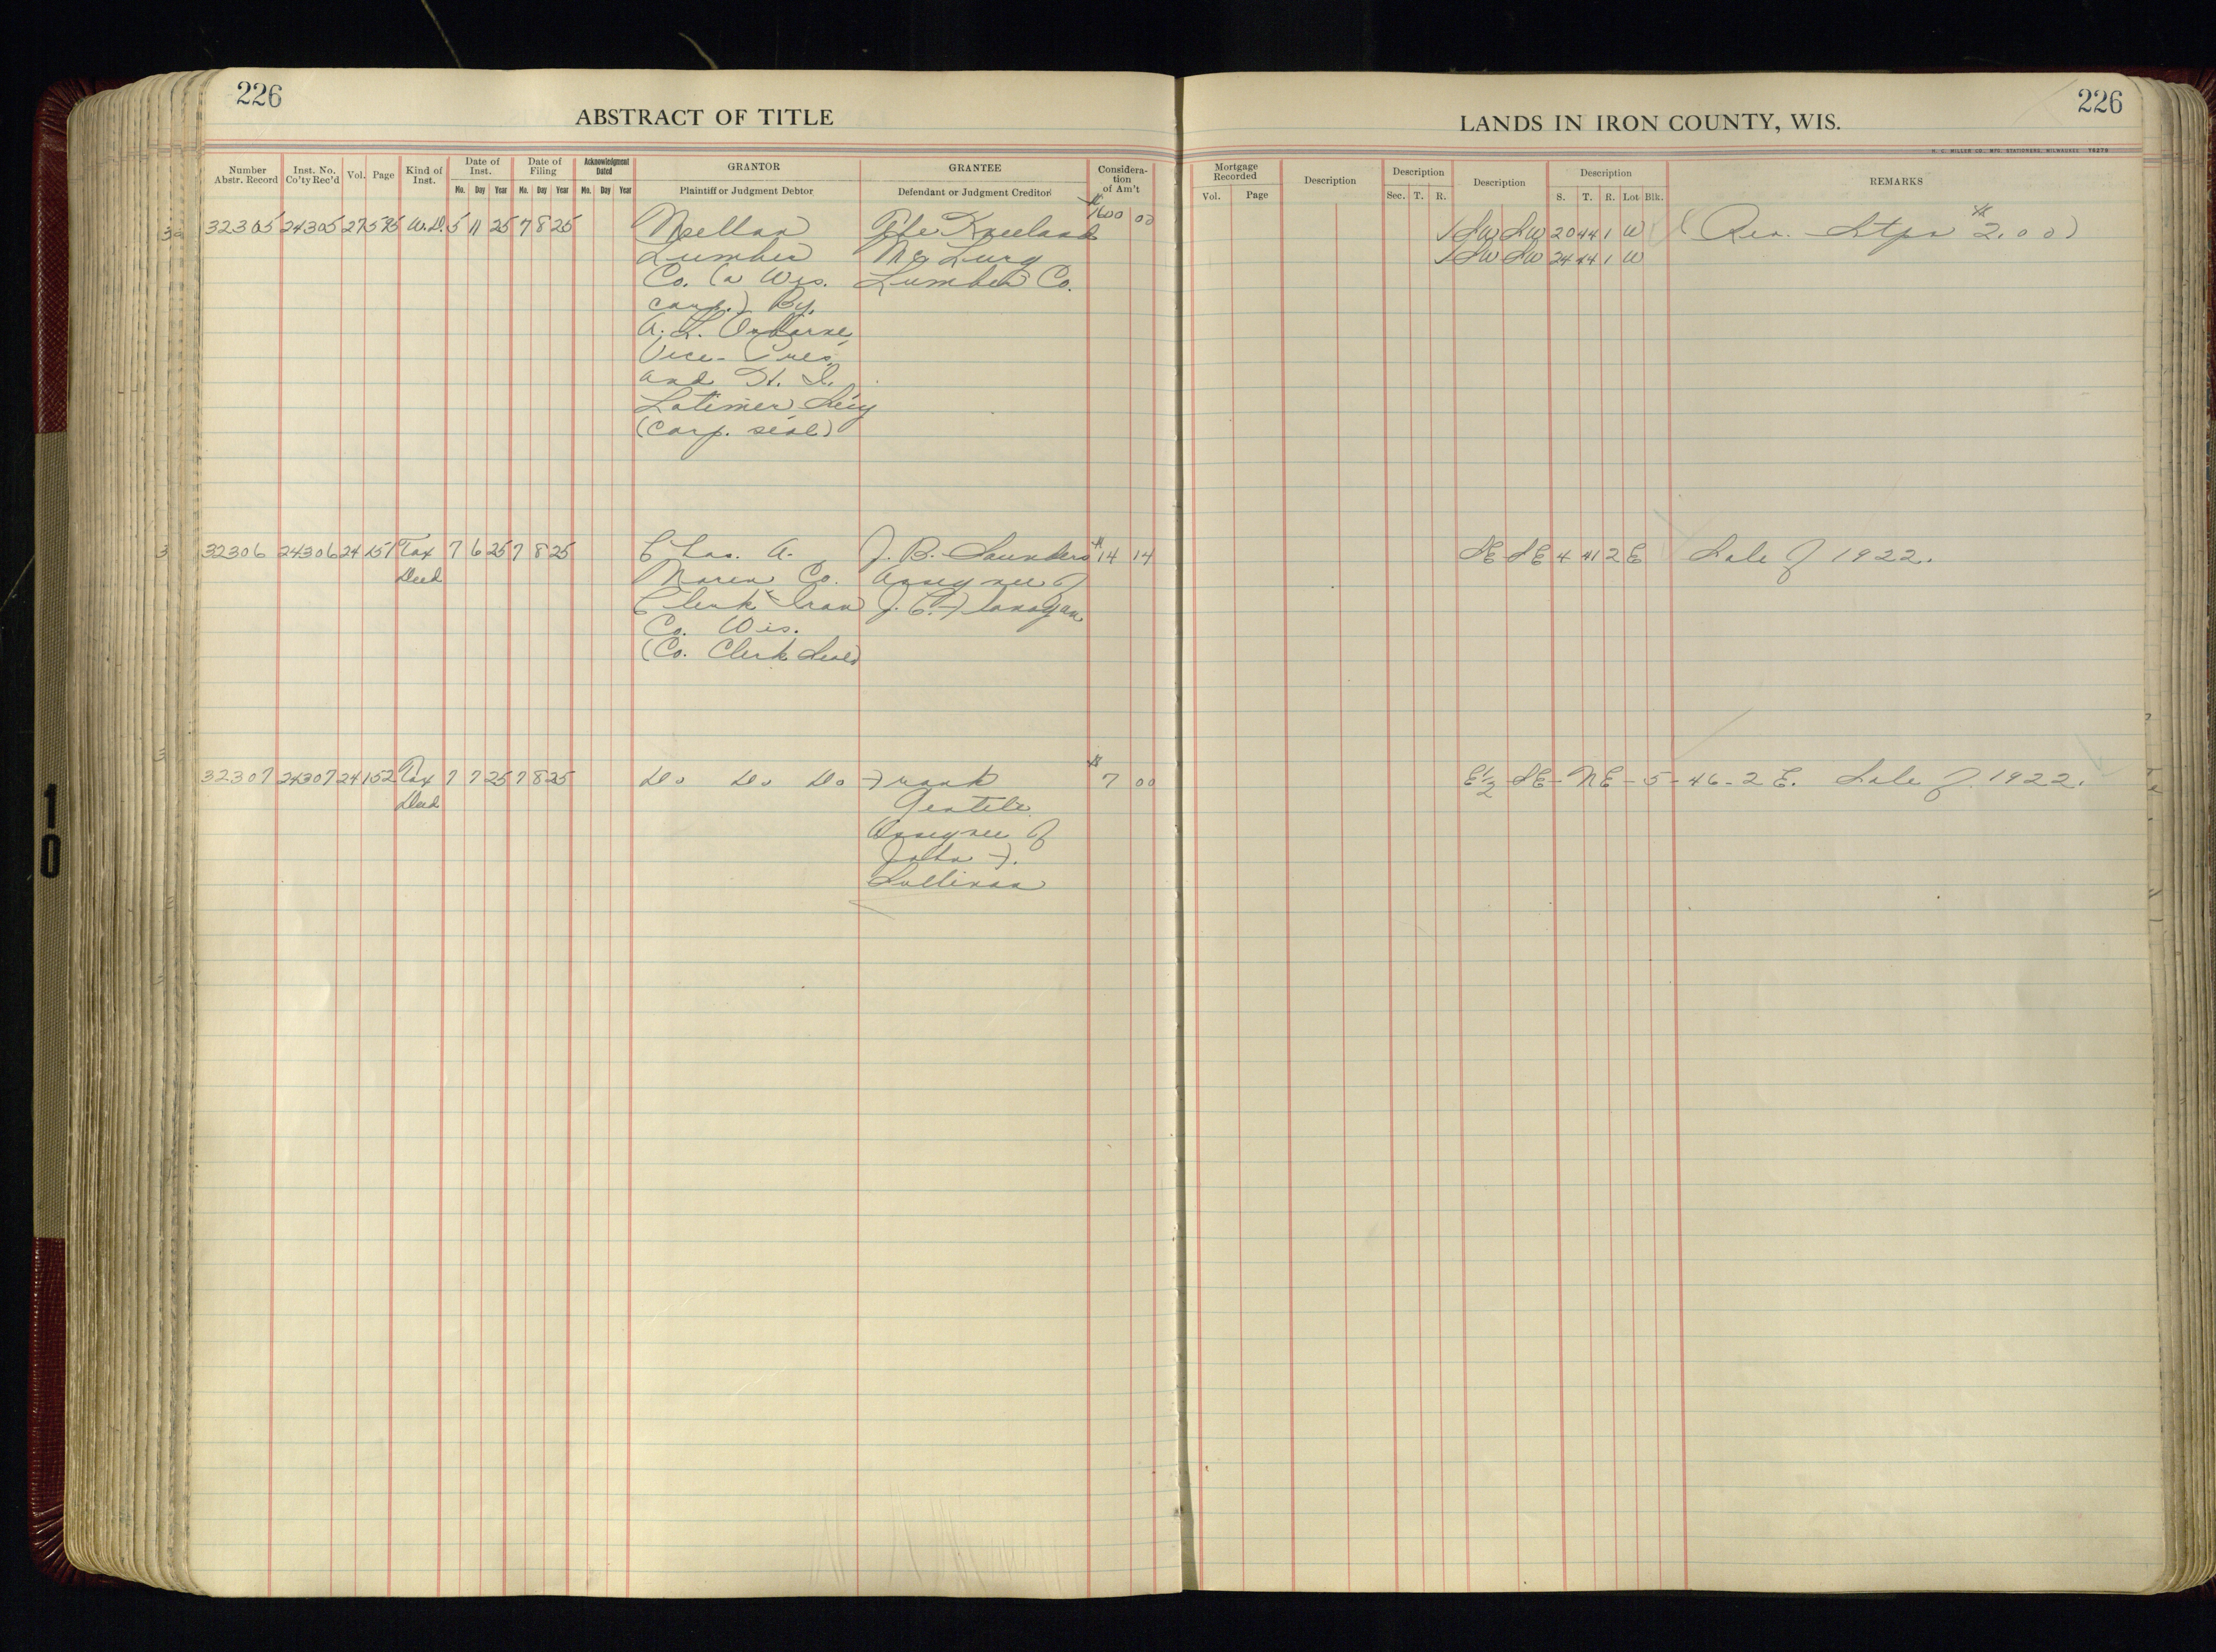 226
ABSTRACT OF TITLE
LANDS IN IRON COUNTY, WIS.
226
H. C. MILLER CO., MFG. STATIONERS, MILWAUKEE
Number Abstr. Record | Inst. No. Co'ty Rec'd | Vol. | Page | Kind of Inst. | Date of Inst. Mo. Day Year | Date of Filing Mo. Day Year | Acknowledgment Dated Mo. Day Year | GRANTOR Plaintiff or Judgment Debtor | GRANTEE Defendant or Judgment Creditor | Consideration of Am't | Mortgage Recorded Vol. Page | Description | Description Sec. T. R. | Description | Description S. T. R. Lot Blk. | REMARKS
32305 24305 27 595 W.D. 5 11 25 7 8 25 Mellen The Kneeland $1600 00 SW SW 20 44 1 W (Rev. Stps $2.00)
Lumber McLurg SW SW 24 44 1 W
Co. (a Wis. Lumber Co.
corp.) By.
A. L. Osborne,
Vice-Pres.
and H. I.
Latimer Secy
(Corp. seal)
32306 24306 24 151 Tax 7 6 25 7 8 25 Chas. A. J. B. Saunders $14 14 SE SE 4 41 2 E Sale of 1922.
Deed Co. Assignee of
Clerk Iron J. C. Flanagan
Co. Wis.
(Co. Clerk Seal)
32307 24307 24 152 Tax 7 7 25 7 8 25 Do Do Do Frank $7 00 E½-SE-NE-5-46-2 E. Sale of 1922.
Deed Gentile
Assignee of
John F.
Sullivan